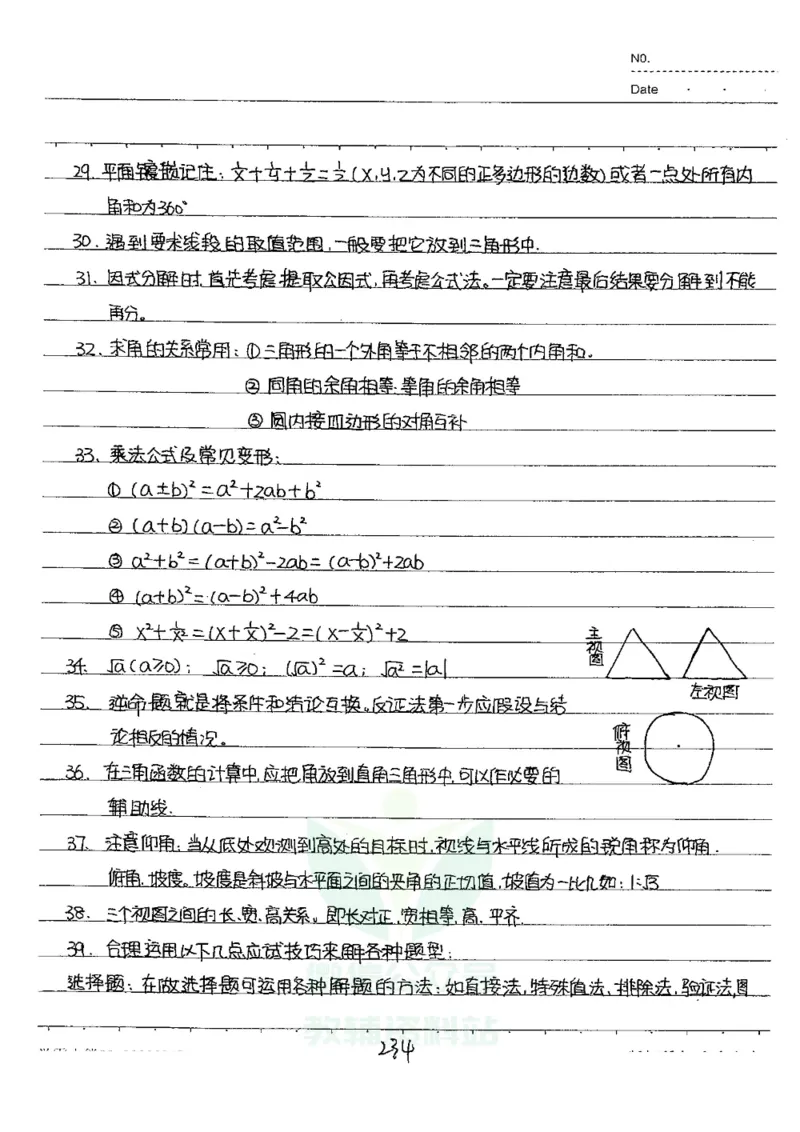 NO.
Date
29. 平面镶嵌记住: 1/x+1/y+1/z=1/2 (x,y,z为不同的正多边形的边数) 或者一点处所有内
角和为360°
30. 遇到要求线段的取值范围,一般要把它放到三角形中.
31. 因式分解时,首先考虑提取公因式,再考虑公式法。一定要注意最后结果要分解到不能
再分。
32. 求角的关系常用: ①三角形的一个外角等于不相邻的两个内角和。
② 同角的余角相等.等角的余角相等
③ 圆内接四边形的对角互补
33. 乘法公式及常见变形:
① (a±b)²=a²+2ab+b²
② (a+b)(a-b)=a²-b²
③ a²+b²=(a+b)²-2ab=(a-b)²+2ab
④ (a+b)²=(a-b)²+4ab
⑤ x²+1/x²=(x+1/x)²-2=(x-1/x)²+2
主视图
左视图
34. √a(a≥0); √a≥0; (√a)²=a; √a²=|a|
35. 逆命题就是将条件和结论互换。反证法第一步应假设与结
论相反的情况。
俯视图
36. 在三角函数的计算中,应把角放到直角三角形中,可以作必要的
辅助线.
37. 注意仰角: 当从低处观测到高处的目标时,视线与水平线所成的锐角称为仰角.
俯角.坡度。坡度是斜坡与水平面之间的夹角的正切值,坡值为一比几如: 1:√3
38. 三个视图之间的长、宽、高关系。即长对正,宽相等,高、平齐.
39. 合理运用以下几点应试技巧来解各种题型:
选择题: 在做选择题可运用各种解题的方法: 如直接法,特殊值法、排除法,验证法,图
教辅资料站
234